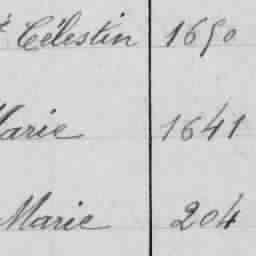 Célestin 1650
Marie 1641
Marie 204